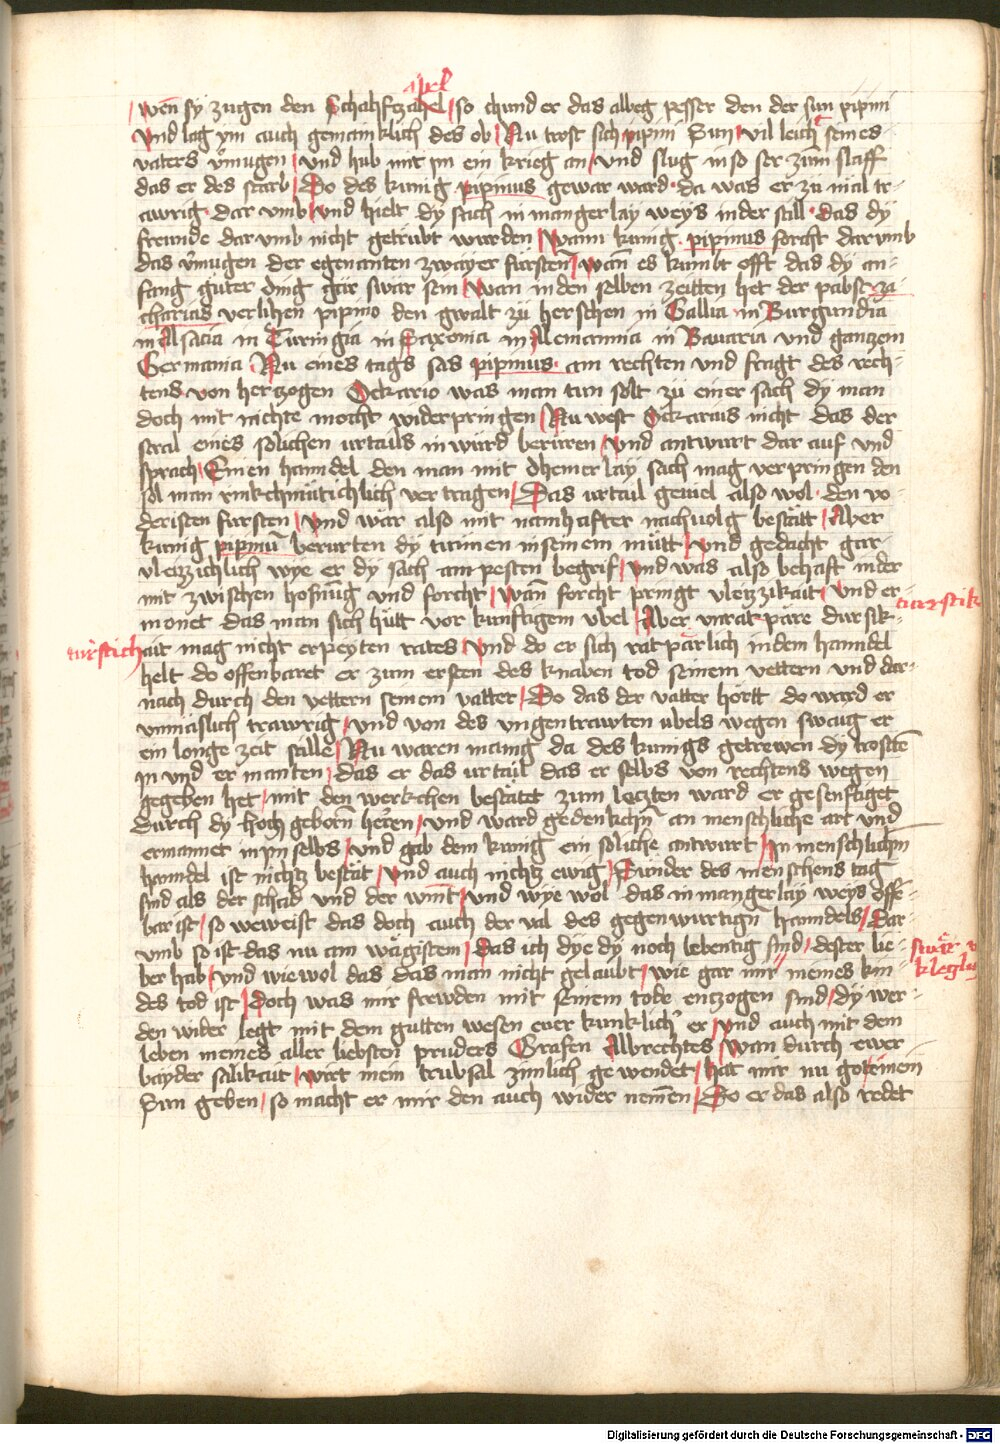 spil
wen sy zugen den Schahffzabel so chund er das albeg pesser den der sun pipini
Vnd lag ym auch gemainklich des ob Nu trost sich pipini Sun vil leicht seines
vaters vermugen vnd hub mit im ein krieg an vnd slug in so ser zum slaff
das er des starb Do des kunig pipinus gewar ward da was er zu mal tr-
awrig dar vmb vnd hielt dy sach in manger lay weys in der still das dy
freunde dar vmb nicht getrubt wurden Wann kunig pipinus forcht dar vmb
das vermugen der egenanten zwayer fursten wan es kumbt offt das dy an-
fang guter ding gar swar sein Wan in den selben zeitten het der pabst za-
charias verlihen pipino den gwalt zu herschen in Gallia in Burgundia
in Alsacia in Turingia in Saxonia in Alemannia in Bauaria vnd gantzem
Germania Nu eines tags sas pipinus am rechten vnd fragt des rech-
tens von hertzogen Ockario was man tun solt zu einer sach dy man
doch mit nichte mocht widerpringen Nu west Ockarius nicht das der
stral eines solichen urtails in wurd beruren vnd antwurt dar auf vnd
sprach Einen hanndel den man mit dhemer lay sach mag verpringen den
sol man rinkchmutichlich vertragen Das urtail geuiel also wol den vo-
deristen fursten vnd war also mit namhafter nachuolg bestatt Aber
kunig pipinum berurten dy turnen in seinem mutt vnd gedacht gar
vleizzichlich wye er dy sach am pesten begrif vnd was also behaft in der
mit zwischen hofnung vnd forcht wan forcht pringt vleizzikait vnd er-
turstik
monet das man sich hutt vor kunftigem vbel Aber vnratpare durstik-
turstich
ait mag nicht erpeyten rates vnd do er sich ratparlich in dem hanndel
helt do offenbaret er zum ersten des knaben tod seinem vettern vnd dar-
nach durch den vettern seinem vatter Do das der vatter hortt do ward er
vnmaslich trawrig vnd von des vngentrawten ubels wegen swaig er
ein longe zeit stille Nu waren manig da des kunigs getrewen dy trosten
in vnd ermanten das er das urtail das er selbs von rechtens wegen
gegeben het mit den werkchen bestatet zum letzten ward er gesenftiget
durch dy hochgeborn herren vnd ward gedenkchn an menschliche art vnd
ermannet in im selbs vnd gab dem kunig ein soliche antwurt In menschlichm
hanndel ist nichtz bestat vnd auch nichtz ewig Sunder des menschens tag
sind als der schad vnd der wint vnd wye wol das in manger lay weys offe-
bar ist so weweist das doch auch der val des gegenwurtign hanndels Dar-
vmb so ist das nu am wagistem das ich dye dy noch lebentig sind dester lie-
ber hab vnd wiewol das das man nicht gelaubt wie gar mir meines kin-
des tod ist Doch was mir frewden mit seinem tode entzogen sind dy wer-
den wider legt mit dem gutten wesen ewer kunklich er vnd auch mit dem
leben meines aller liebsten pruders Grafen Albrechtes wan durch ewer
bayder salikait wirt mein trubsal zimlich gewendet hat mir nu got einen
Sun geben so macht er mir den auch wider nemen Do er das also redet
Digitalisierung gefördert durch die Deutsche Forschungsgemeinschaft - DFG